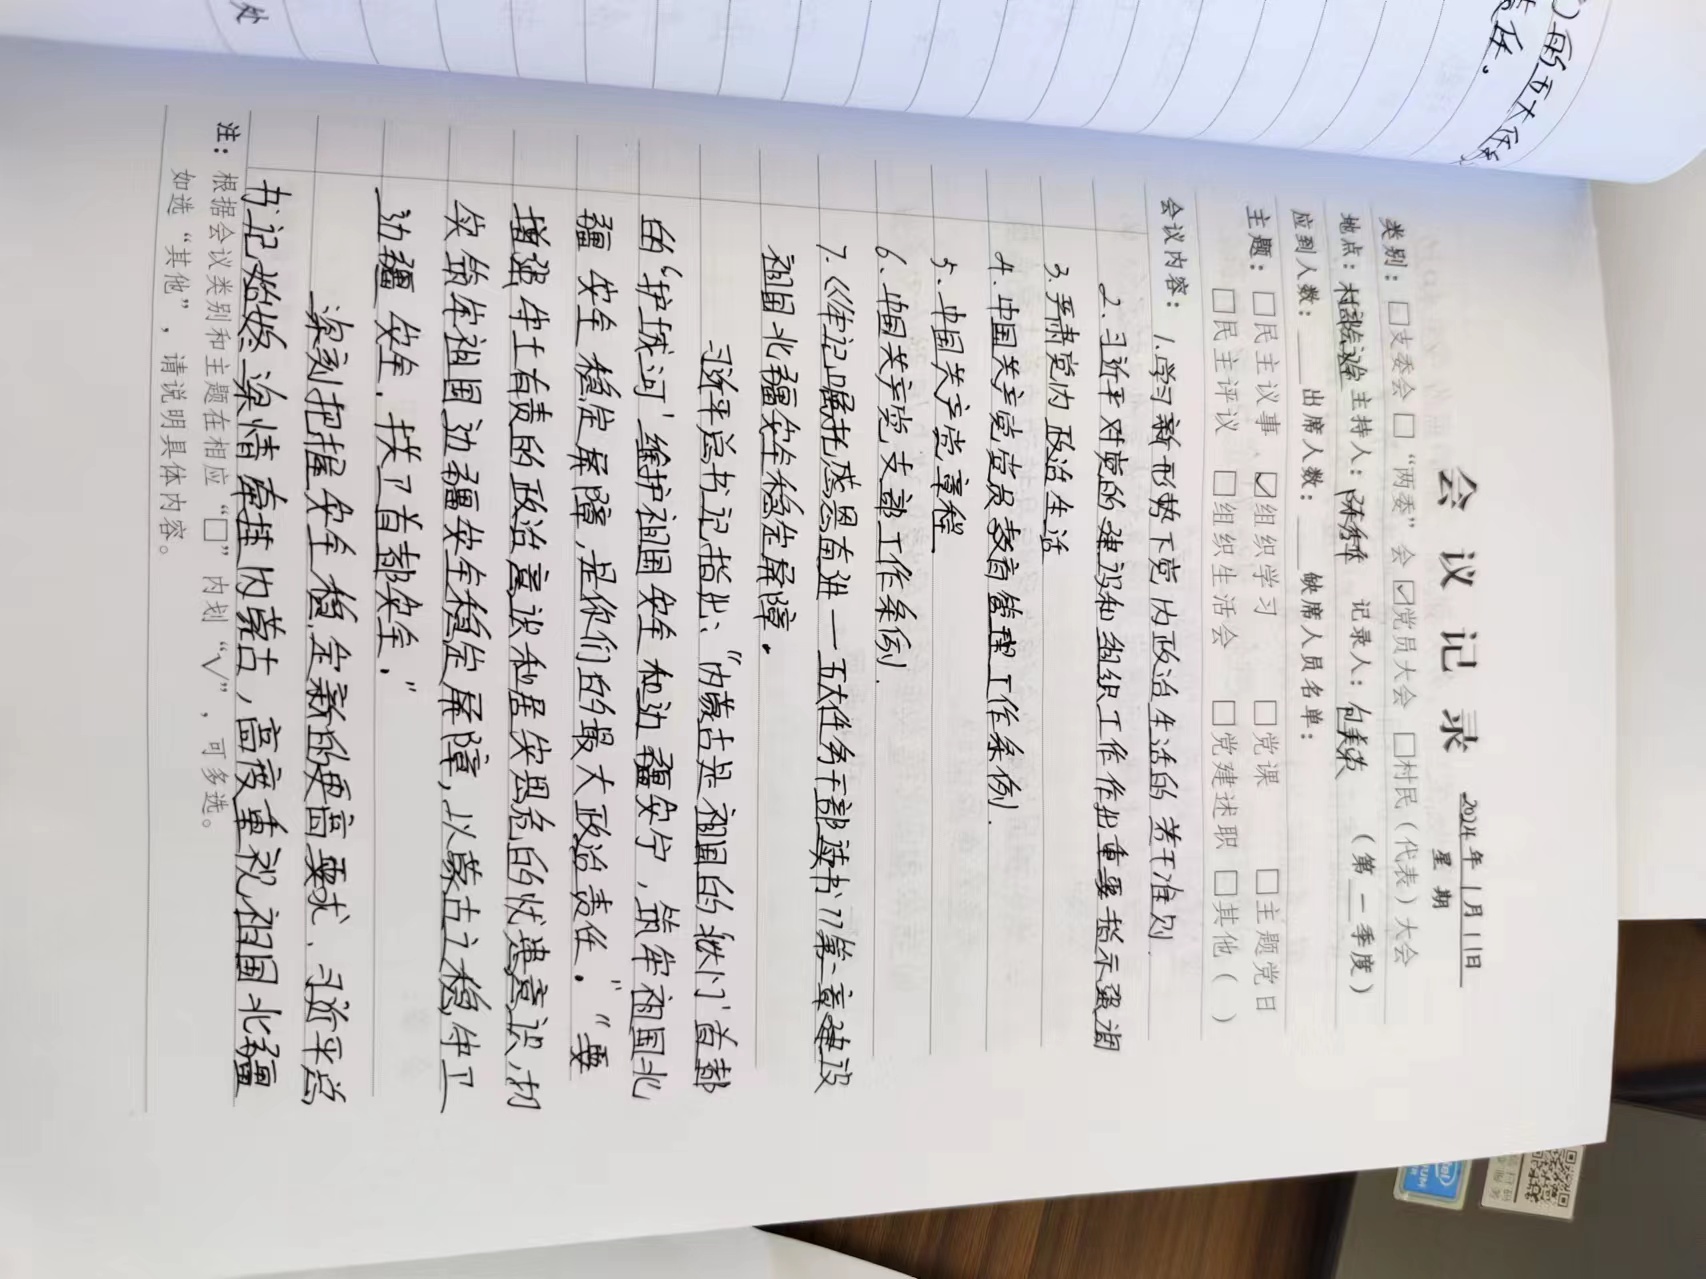 会议记录
2024年1月11日
星期
类别：□支委会 □“两委”会 ☑党员大会 □村民（代表）大会
地点：村部会议室 主持人： 记录人：包美荣 （第一季度）
应到人数： 出席人数： 缺席人员名单：
主题：□民主议事 ☑组织学习 □党课 □主题党日
□民主评议 □组织生活会 □党建述职 □其他（ ）
会议内容：1.学习新形势下党内政治生活的若干准则
2.习近平对党的建设和组织工作作出重要指示强调
3.严肃党内政治生活
4.中国共产党党员教育管理工作条例.
5.中国共产党章程
6.中国共产党支部工作条例.
7.《牢记嘱托感恩奋进—五大任务干部读书》第二章建设
祖国北疆安全稳定屏障。
习近平总书记指出：“内蒙古是祖国的‘北门’首都
的‘护城河’维护祖国安全和边疆安宁，筑牢祖国北
疆安全稳定屏障，是你们的最大政治责任。”“要
增强守土有责的政治意识和居安思危的忧患意识，切
实筑牢祖国边疆安全稳定屏障，以蒙古之稳，守卫
边疆安全，拱卫首都安全。”
深刻把握安全稳定新的更高要求，习近平总
书记始终深情牵挂内蒙古，高度重视祖国北疆
注：根据会议类别和主题在相应“□”内划“√”，可多选。
如选“其他”，请说明具体内容。
处
的五大任务